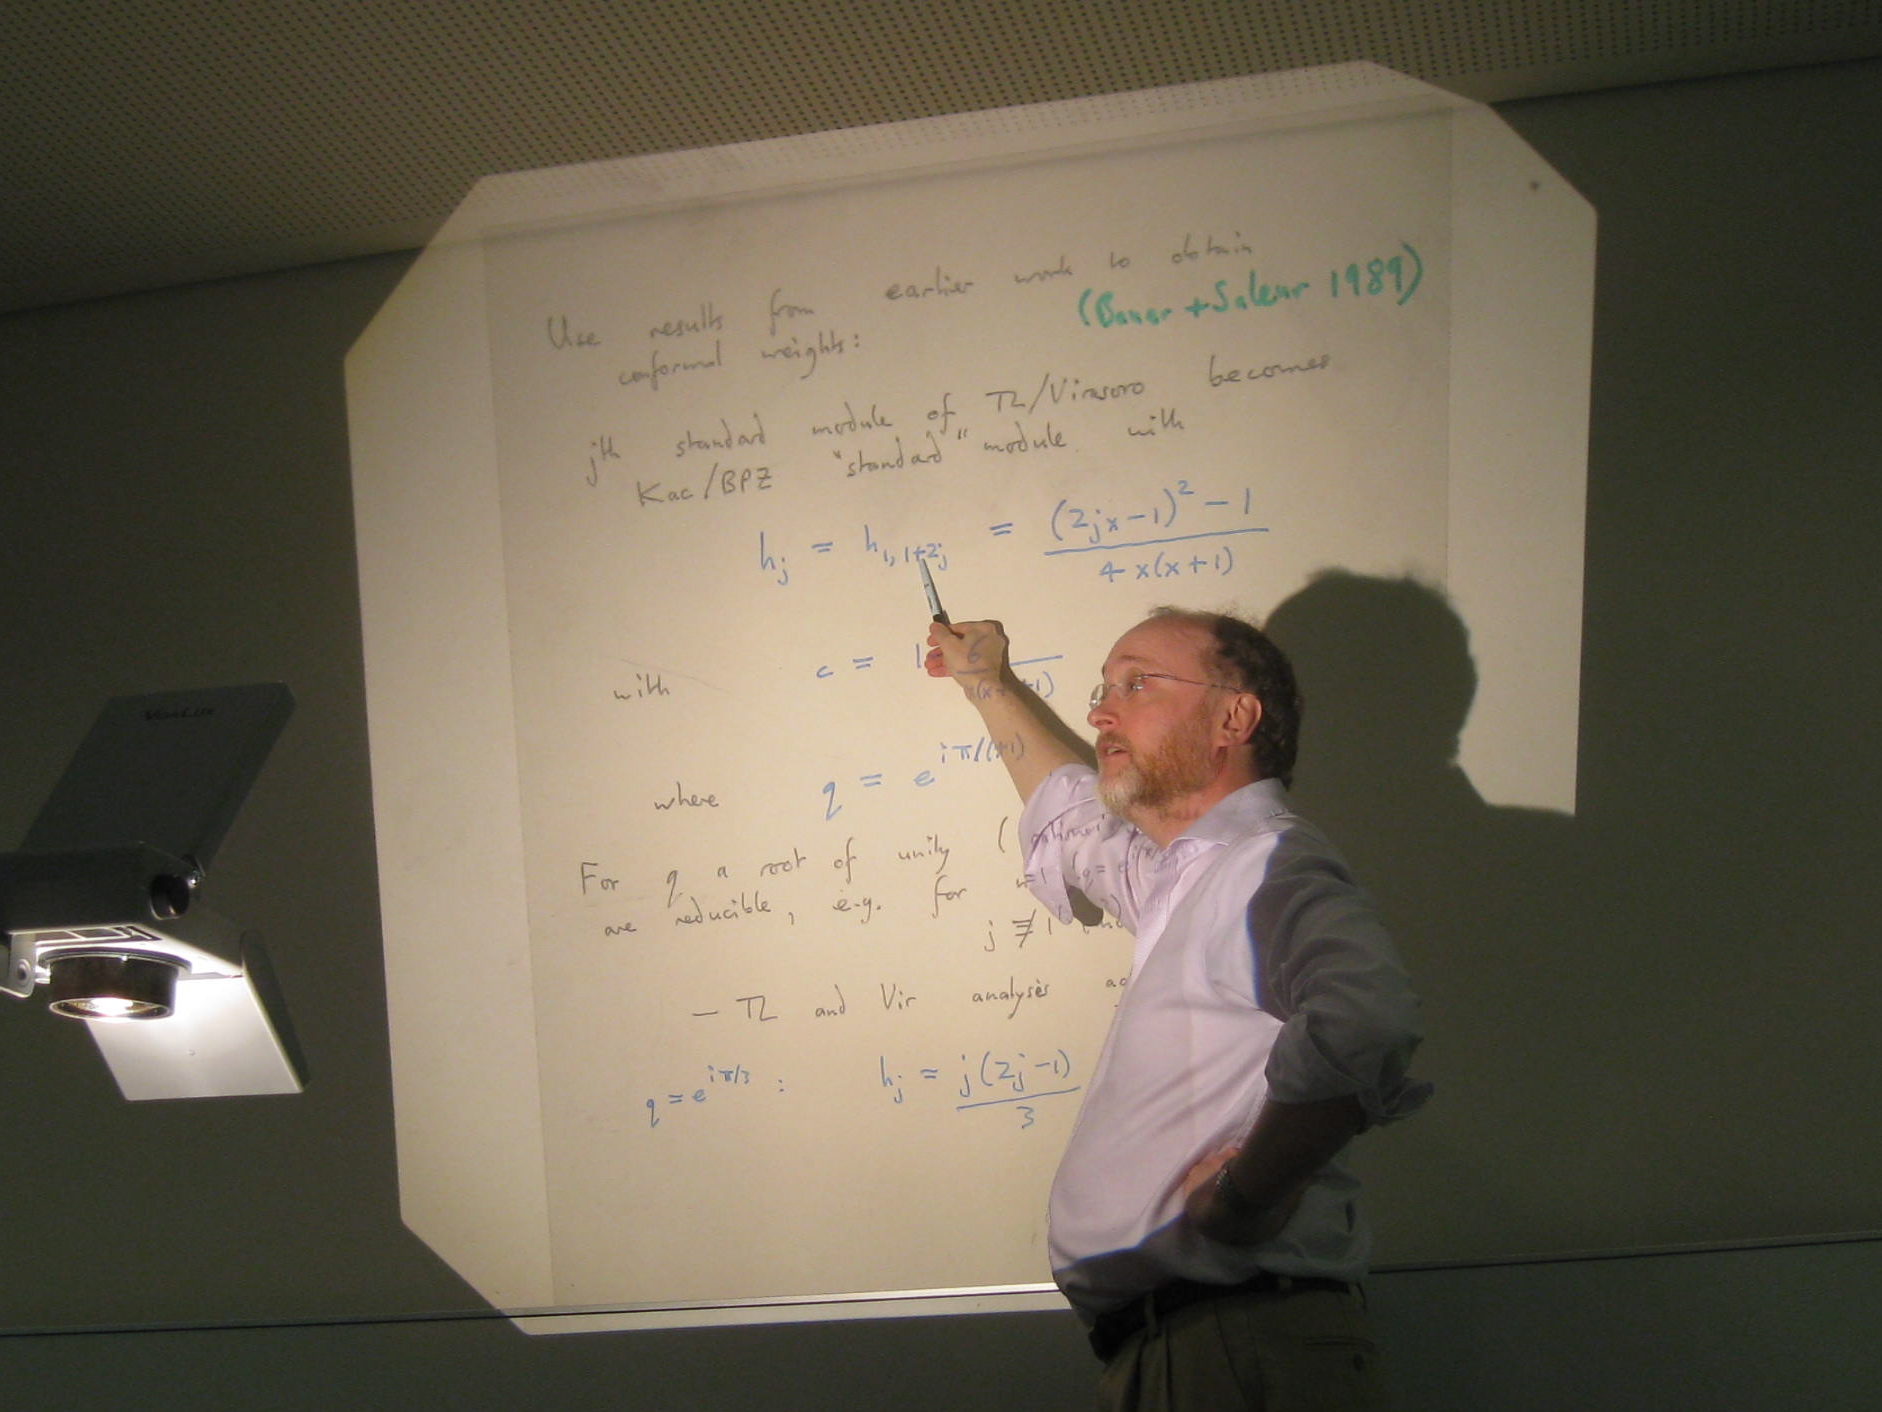 Use results from earlier work to obtain
conformal weights:
(Bauer + Saleur 1989)
jth standard module of TL/Virasoro becomes
Kac/BPZ "standard" module with
h_j = h_{1,1+2j} = \frac{(2jx-1)^2-1}{4x(x+1)}
with c = 1 - 6
where q = e^{iπ/(x+1)}
For q a root of unity (
are reducible, e.g. for n=1 (q = e
j ≢ 1 (
— TL and Vir analyses
q = e^{iπ/3} : h_j = \frac{j(2j-1)}{3}